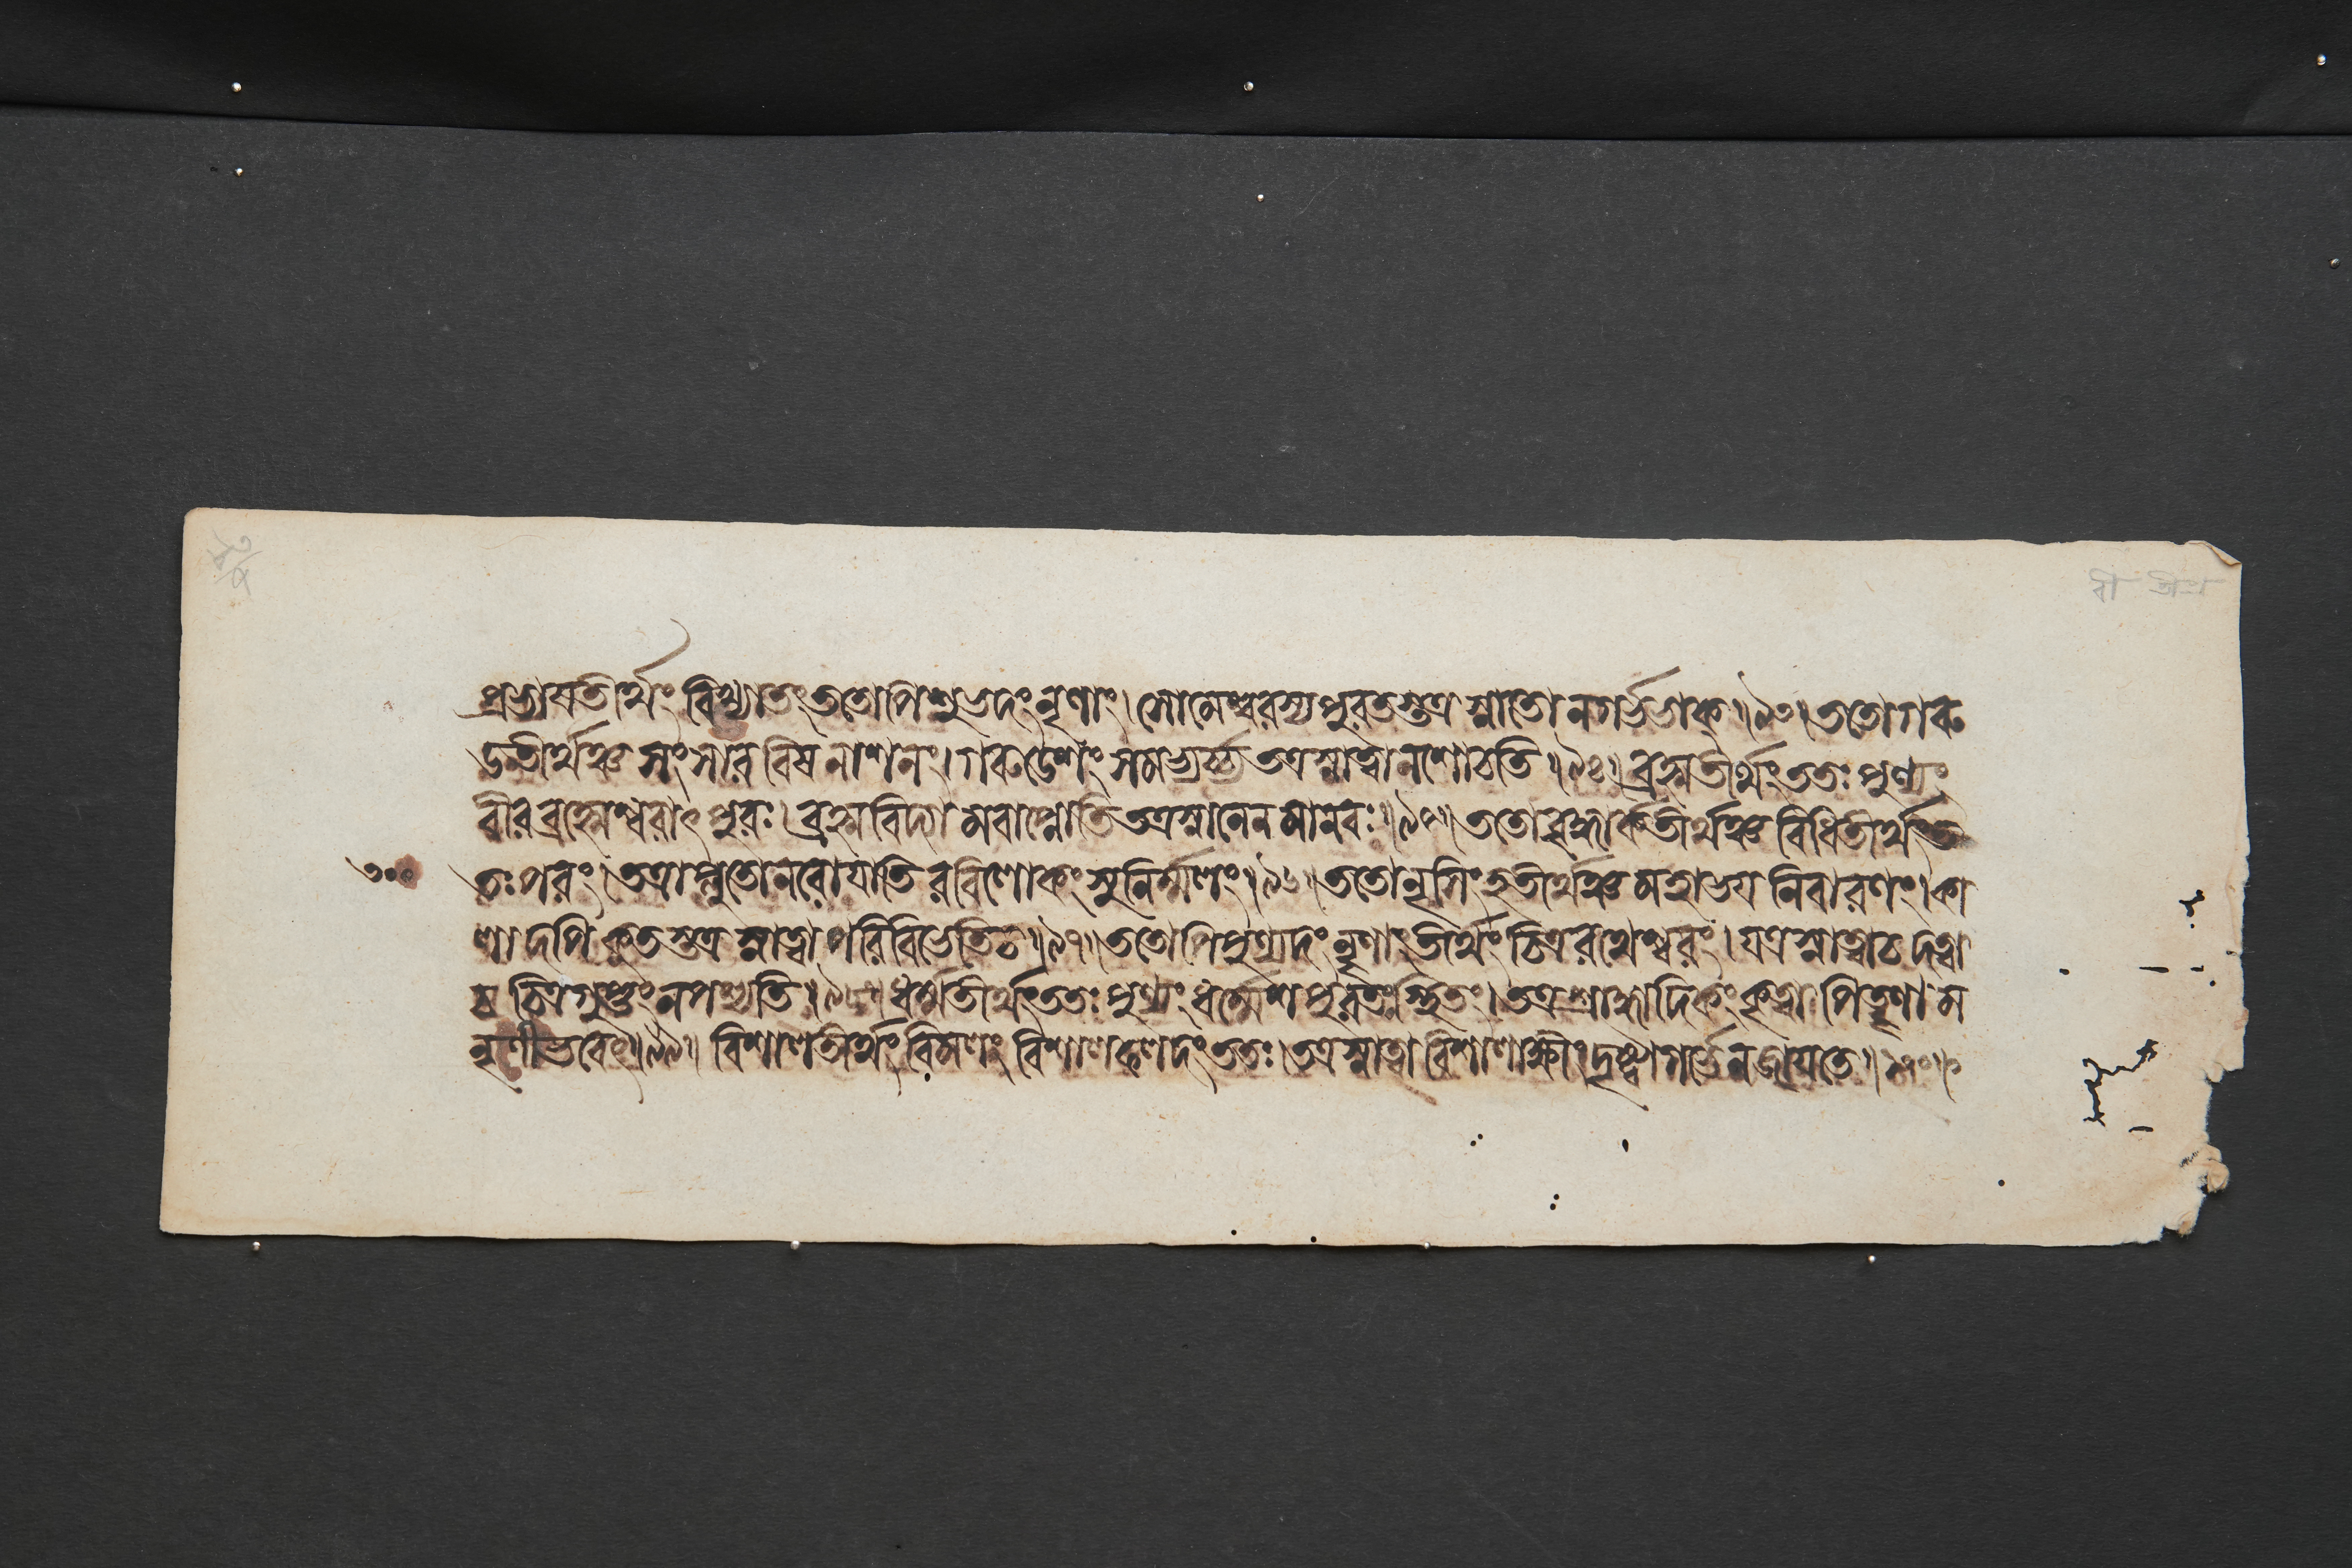 প্রভাসতীর্থং বিখ্যাতং ততোপি শুভদং নৃণাং। সোমেশ্বরস্য পুরতস্তত্র স্নাতো ন গর্ভভাক্॥৯৩॥ ততো গরু
ডতীর্থঞ্চ সংসারবিষনাশনং। গরুডেশং সমভ্যর্চ্চ্য তত্র স্নাত্বা ন শোচতি॥৯৪॥ ব্রহ্মতীর্থং ততঃ পুণ্যং
বীরব্রহ্মেশ্বরাৎ পুরঃ। ব্রহ্মবিদ্যামবাপ্নোতি তত্র স্নানেন মানবঃ॥৯৫॥ ততো বৃদ্ধার্কতীর্থঞ্চ বিধিতীর্থং ত
তঃ পরং। তত্রাপ্লুতো নরো যাতি রবিলোকং সুনির্ম্মলং॥৯৬॥ ততো নৃসিংহতীর্থঞ্চ মহাভয়নিবারণং। কা
লাদপি কুতস্তত্র স্নাত্বা পরিবিভেতি চ॥৯৭॥ ততোপি পুণ্যদং নৃণাং তীর্থং চিত্ররথেশ্বরং। যত্র স্নাত্বা চ দত্বা
চ চিত্রগুপ্তং ন পশ্যতি॥৯৮॥ ধর্ম্মতীর্থং ততঃ পুণ্যং ধর্ম্মেশপুরতঃ স্থিতং। তত্র শ্রাদ্ধাদিকং কৃত্বা পিতৄণাম
নৃণী ভবেৎ॥৯৯॥ বিশালতীর্থং বিমলং বিশালফলদং ততঃ। তত্র স্নাত্বা বিশালাক্ষীং দৃষ্ট্বা গর্ভে ন জায়তে॥
৩০০